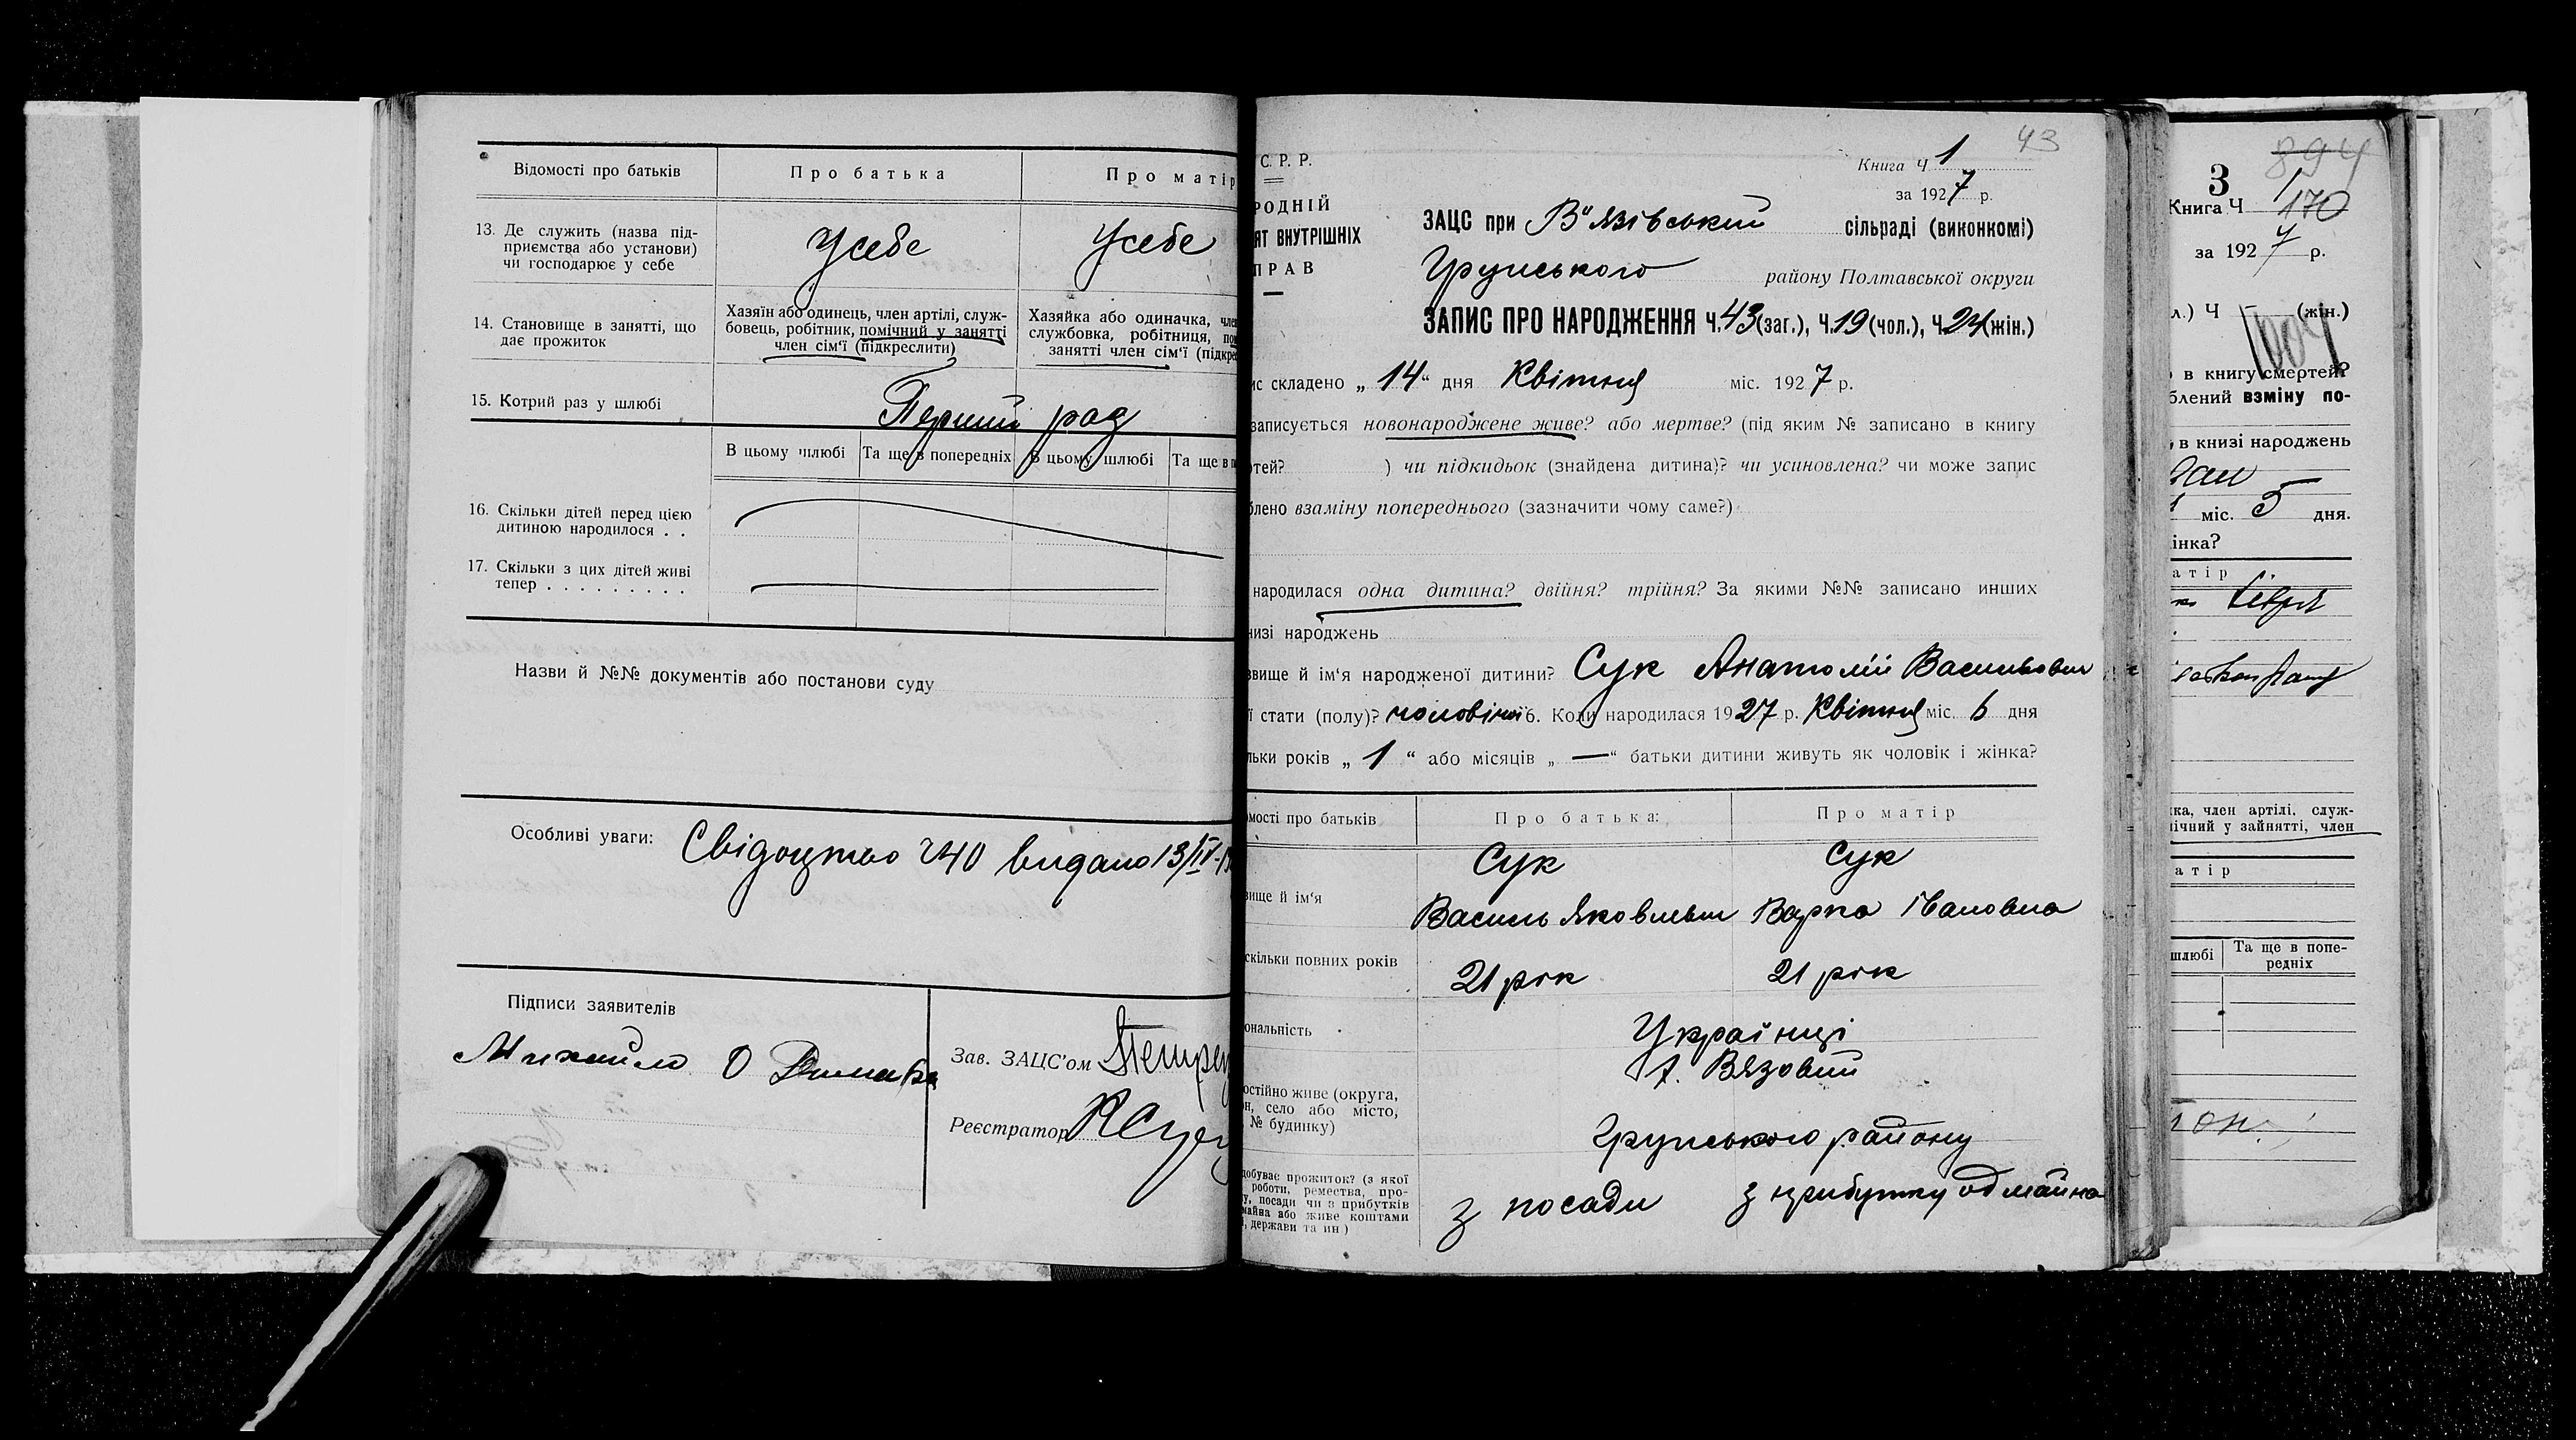 Відомості про батьків
Про батька
Про матір
13. Де служить (назва під-
приємства або установи)
чи господарює у себе
У себе
У себе
14. Становище в занятті, що
дає прожиток
Хазяїн або одинець, член артілі, служ-
бовець, робітник, помічний у занятті
член сім'ї (підкреслити)
Хазяйка або одиначка, член
службовка, робітниця, по
занятті член сім'ї (підкре
15. Котрий раз у шлюбі
Перший раз
В цьому шлюбі
Та ще в попередніх
В цьому шлюбі
Та ще в п
16. Скільки дітей перед цією
дитиною народилося . .
17. Скільки з цих дітей живі
тепер . . . . . . . . .
Назви й №№ документів або постанови суду
Особливі уваги:
Свідоцтво Ч 40 видано 13/IV-
Підписи заявителів
Михайло О
Зав. ЗАЦС'ом
Реєстратор
43
С. Р. Р.
РОДНІЙ
ЯТ ВНУТРІШНІХ
ПРАВ
Книга Ч 1
за 1927 р.
ЗАЦС при В'язівській сільраді (виконкомі)
Грунського району Полтавської округи
ЗАПИС ПРО НАРОДЖЕННЯ Ч. 43 (заг.), Ч. 19 (чол.), Ч. 24 (жін.)
ис складено „ 14 " дня Квітня міс. 1927 р.
записується новонароджене живе? або мертве? (під яким № записано в книгу
ртей? ) чи підкидьок (знайдена дитина)? чи усиновлена? чи може запис
блено взаміну попереднього (зазначити чому саме?)
народилася одна дитина? двійня? трійня? За якими №№ записано инших
низі народжень
звище й ім'я народженої дитини? Сук Анатолій Васильович
ї стати (полу)? чоловічої 6. Коли народилася 1927 р. Квітня міс. 6 дня
льки років „ 1 " або місяців „ — " батьки дитини живуть як чоловік і жінка?
омості про батьків
Про батька:
Про матір
вище й ім'я
Сук
Василь Яковлевич
Сук
Варка Івановна
скільки повних років
21 рік
21 рік
ональність
Українці
остійно живе (округа,
он, село або місто,
№ будинку)
х. Вязовий
Грунського району
добуває прожиток? (з якої
роботи, ремества, про-
у, посади чи з прибутків
майна або живе коштами
, держави та ин.)
з посади
з прибутку од майна
894
3
Книга Ч 1
170
за 1927 р.
л.) Ч (жін.)
в книгу смертей?
блений взміну по-
в книзі народжень
міс. 5 дня.
інка?
атір
ка, член артілі, служ-
ічний у зайнятті, член
атір
шлюбі
Та ще в попе-
редніх